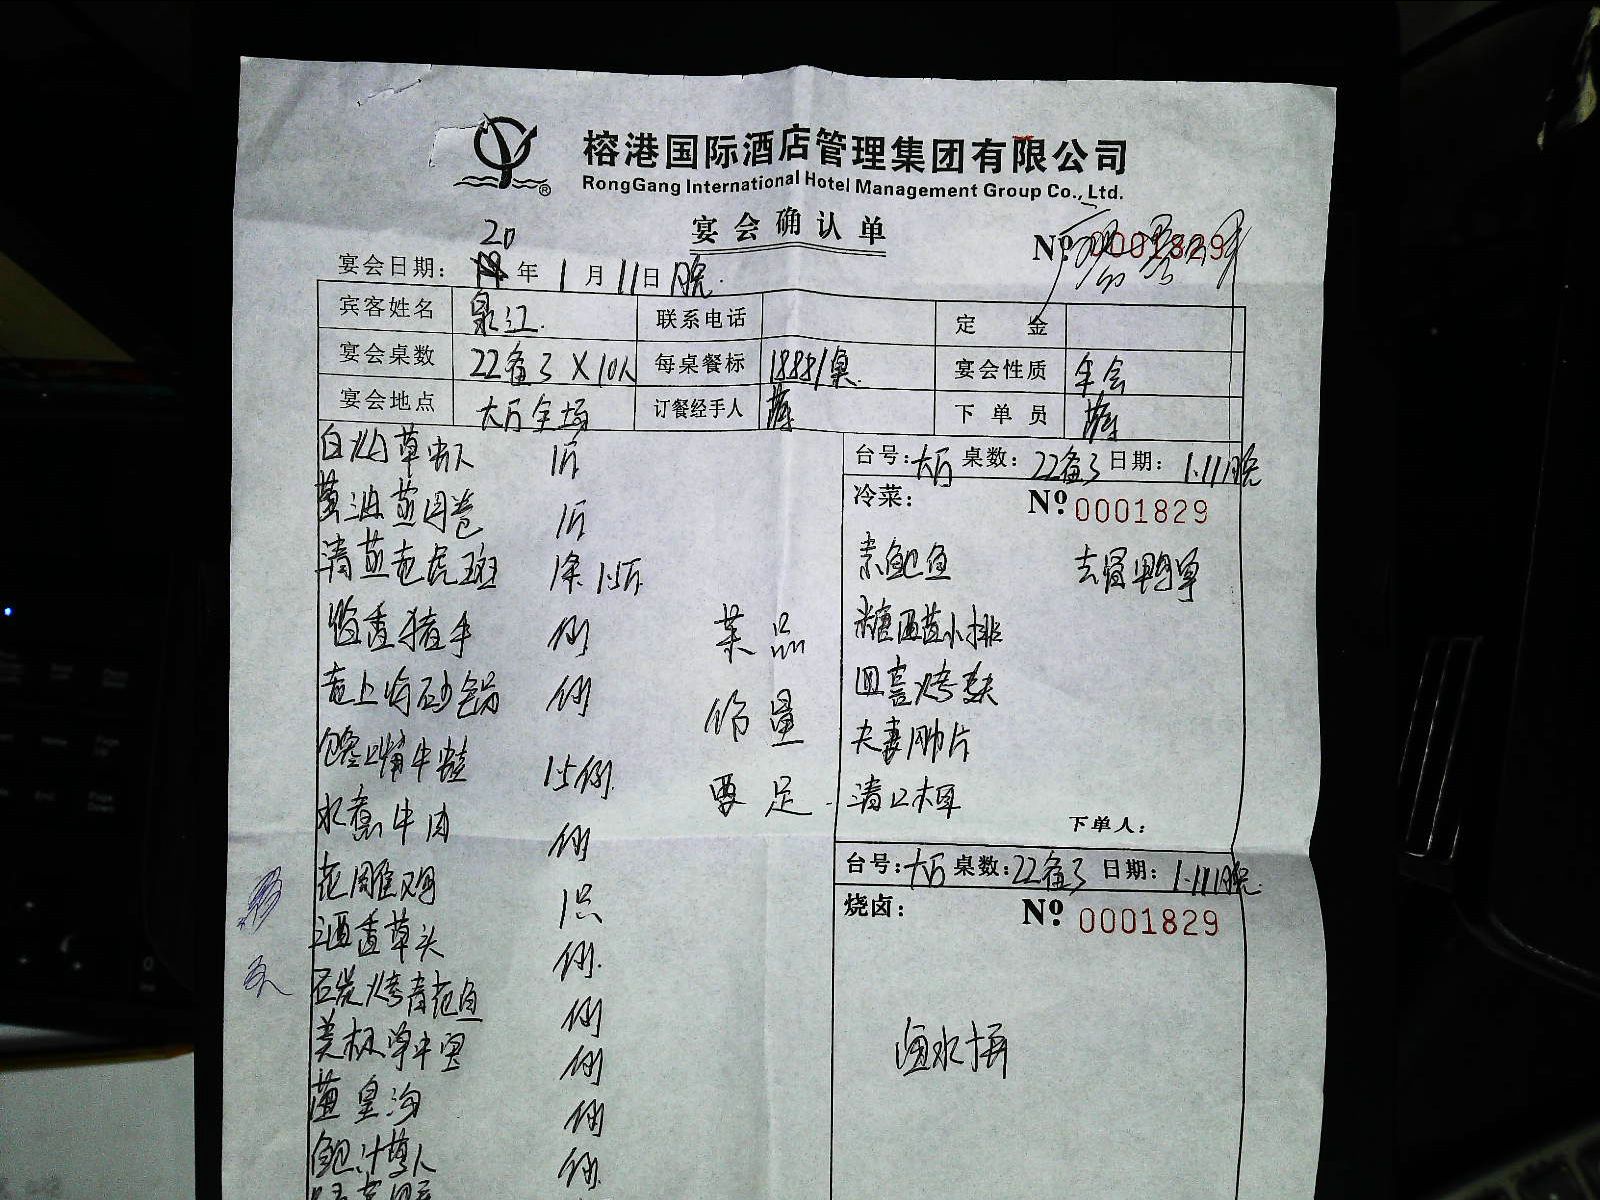 榕港国际酒店管理集团有限公司
RongGang International Hotel Management Group Co., Ltd.
宴会确认单
Nº 0001829
宴会日期: 20年1月11日晚
宾客姓名 泉江 联系电话 定金
宴会桌数 22备3×10人 每桌餐标 1888/桌 宴会性质 年会
宴会地点 大厅全场 订餐经手人 薛 下单员 薛
白灼草虾 1斤
1斤
清蒸老虎斑 1条 1.5斤
猪手 例
老上海砂锅 例
馋嘴牛蛙 1.5例
水煮牛肉 例
花雕鸡 1只
酒香草头 例
石炭烤青花鱼 例
美极 例
例
鲍汁 例
菜品
份量
要足
台号: 大厅 桌数: 22备3 日期: 1.11晚
冷菜: Nº 0001829
素鲍鱼 去骨鸭掌
糖醋小排
四喜烤麸
夫妻肺片
清口木耳
下单人:
台号: 大厅 桌数: 22备3 日期: 1.11晚
烧卤: Nº 0001829
卤水拼